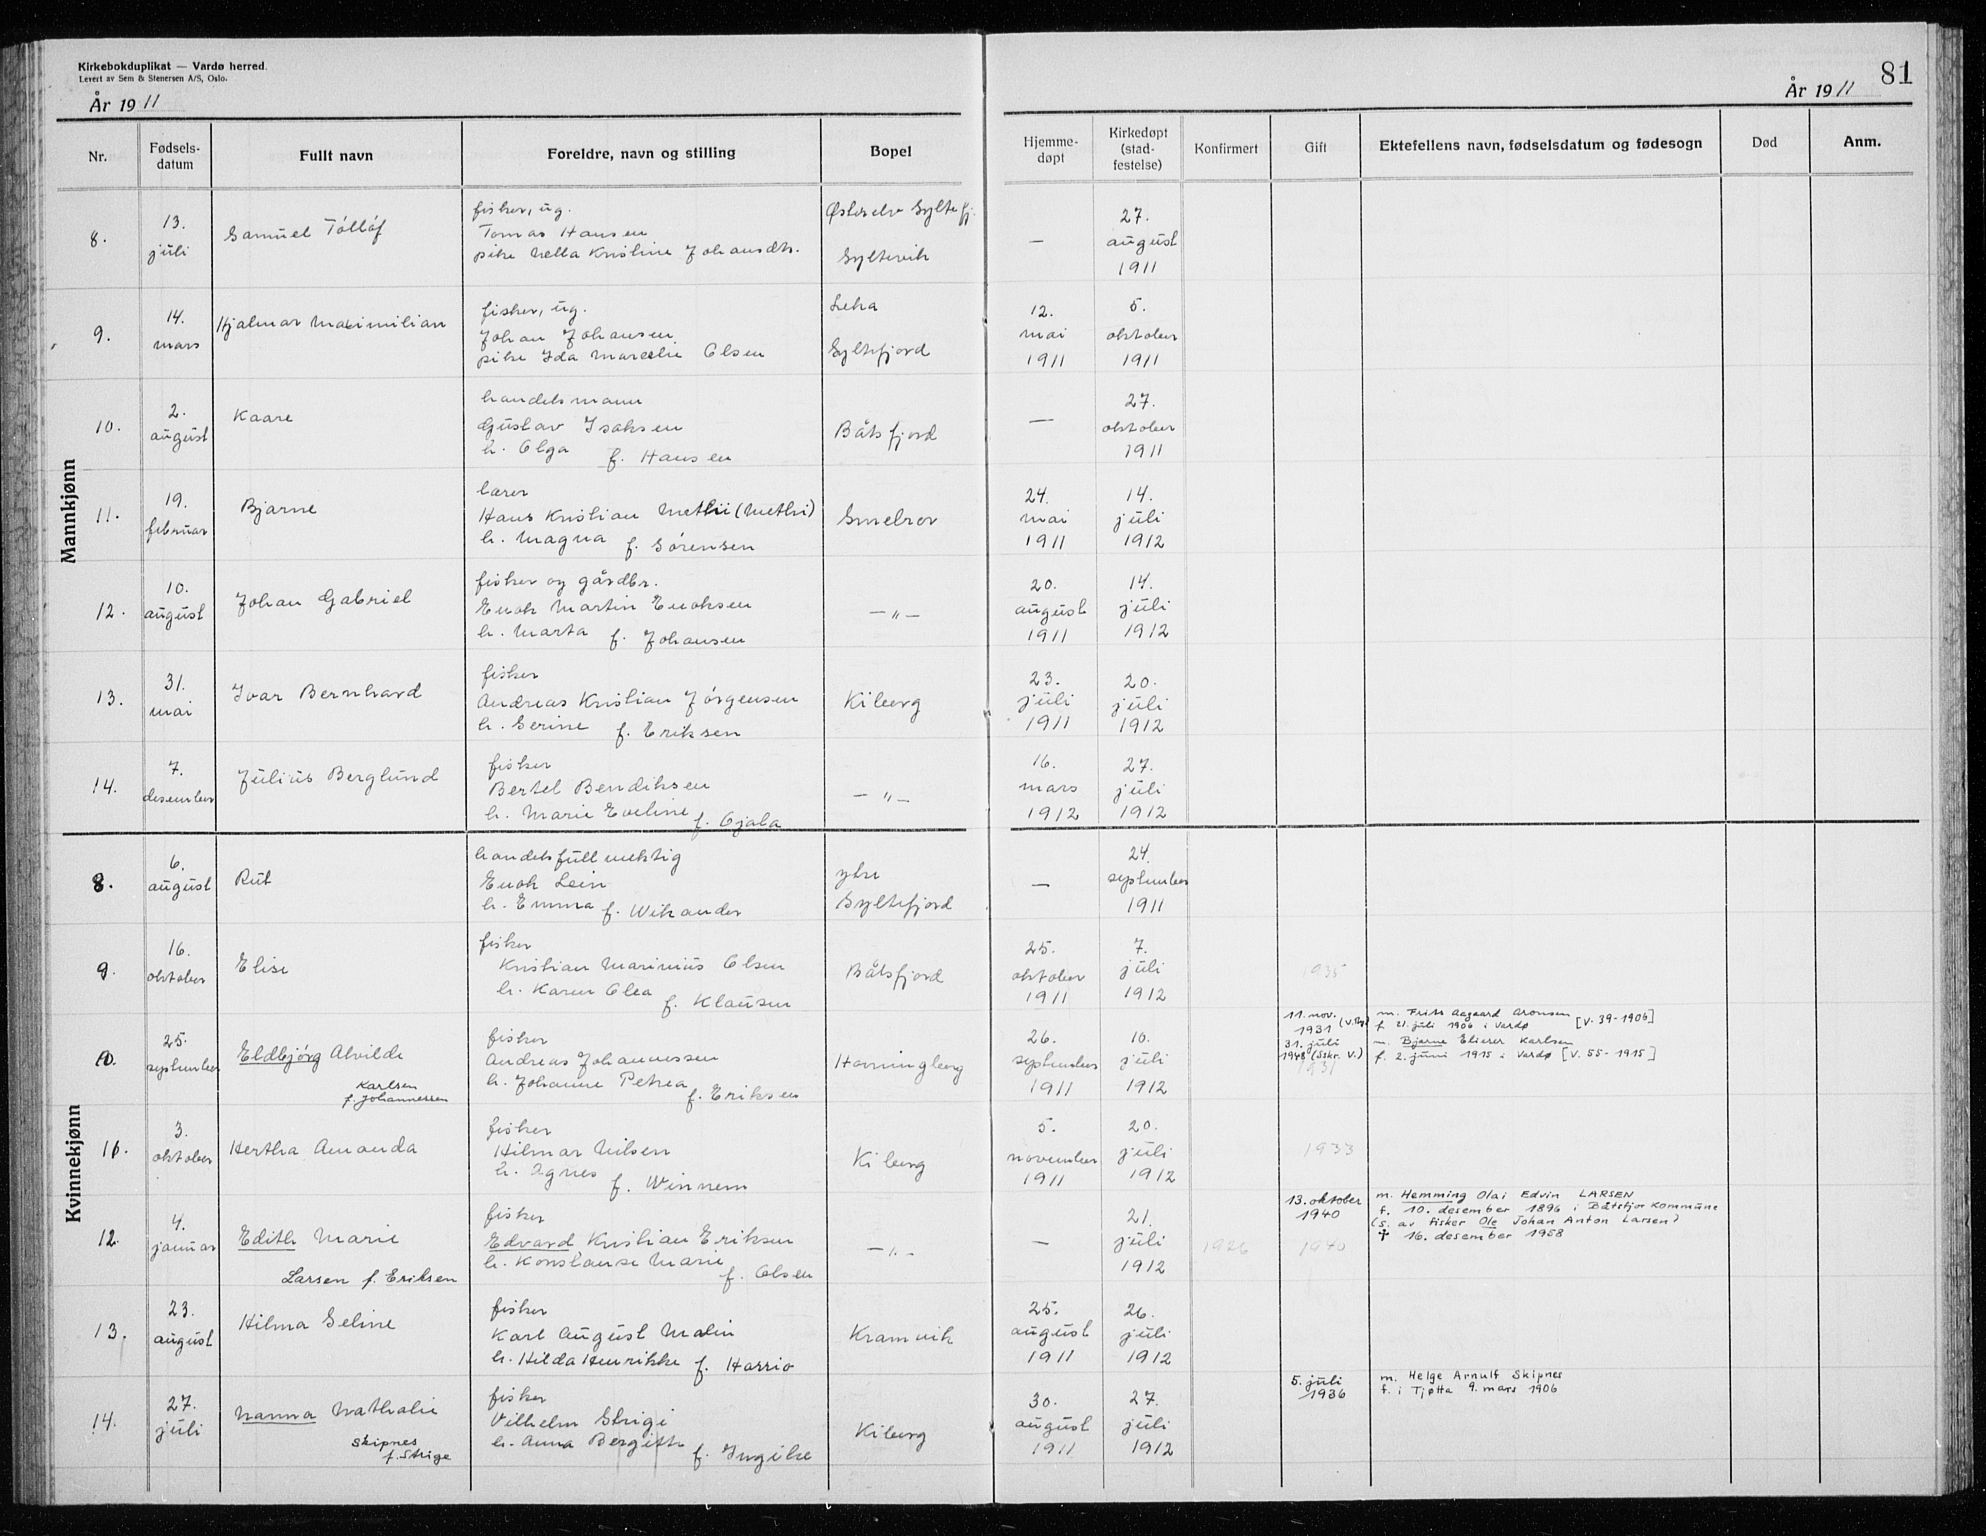 Kirkebokduplikat — Vardø herred.
Levert av Sem & Stenersen A/S, Oslo.
År 1911
År 1911
81
Nr. Fødsels-datum Fullt navn Foreldre, navn og stilling Bopel Hjemme-døpt Kirkedøpt (stad-festelse) Konfirmert Gift Ektefellens navn, fødselsdatum og fødesogn Død Anm.
Mannkjønn
8. 13. juli Samuel Tolløf
fisker, ug.
Tomas Hansen
pike Nella Kristine Johansdtr.
Østerelv Syltefj.
Syltevik
— 27. august 1911
9. 14. mars Hjalmar Maximilian
fisker, ug.
Johan Johansen
pike Ida Marcelie Olsen
Leka
Syltefjord
12. mai 1911 5. oktober 1911
10. 2. august Kaare
handelsmann
Gustav Isaksen
h. Olga f. Hansen
Båtsfjord
— 27. oktober 1911
11. 19. februar Bjarne
lærer
Hans Kristian Methii (Methi)
h. Magna f. Sørensen
Smelror
24. mai 1911 14. juli 1912
12. 10. august Johan Gabriel
fisker og gårdbr.
Enok Martin Enoksen
h. Marta f. Johansen
— „ —
20. august 1911 14. juli 1912
13. 31. mai Ivar Bernhard
fisker
Andreas Kristian Jørgensen
h. Serine f. Eriksen
Kiberg
23. juli 1911 20. juli 1912
14. 7. desember Julius Berglund
fisker
Bertel Bendiksen
h. Marie Eveline f. Ojala
— „ —
16. mars 1912 27. juli 1912
Kvinnekjønn
8. 6. august Rut
handelsfullmektig
Enok Lein
h. Emma f. Wikander
ytre
Syltefjord
— 24. september 1911
9. 16. oktober Elise
fisker
Kristian Marinius Olsen
h. Karen Olea f. Klausen
Båtsfjord
25. oktober 1911 7. juli 1912
1935
10. 25. september Eldbjørg Alvilde
Karlsen
f. Johannessen
fisker
Andreas Johannessen
h. Johanne Petrea f. Eriksen
Havningberg
26. september 1911 10. juli 1912
11. nov. 1931
m. Frits Aagaard Aronsen
f. 21. juli 1906 i Vardø [V. 39-1906]
31. juli 1948 (Sskr. V.)
m. Bjarne Elierer Karlsen
f. 2. juni 1915 i Vardø [V. 55-1915]
1931
11. 3. oktober Hertha Amanda
fisker
Hilmar Nilsen
h. Agnes f. Winnem
Kiberg
5. november 1911 20. juli 1912
1933
12. 4. januar Edith Marie
Larsen f. Eriksen
fisker
Edvard Kristian Eriksen
h. Konstanse Marie f. Olsen
— „ —
— 21. juli 1912
1926
13. oktober 1940
1940
m. Hemming Olai Edvin LARSEN
f. 10. desember 1896 i Båtsfjor Kommune
(s. av fisker Ole Johan Anton Larsen)
† 16. desember 1958
13. 23. august Hilma Seline
fisker
Karl August Malin
h. Hilda Henrikke f. Harrio
Kramvik
25. august 1911 26. juli 1912
14. 27. juli Nanna Nathalie
Skipnes
f. Strige
fisker
Vilhelm Strigi
h. Anna Bergitte f. Ingilæ
Kiberg
30. august 1911 27. juli 1912
5. juli 1936
m. Helge Arnulf Skipnes
f. i Tjøtta 9. mars 1906